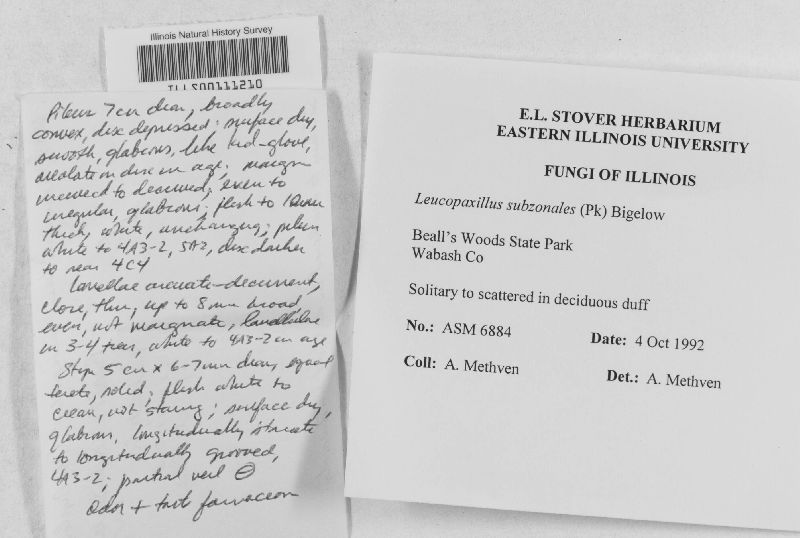 Illinois Natural History Survey
ILLS00111210
Pileus 7cm diam, broadly
convex, disc depressed; surface dry,
smooth, glabrous, like kid-glove,
areolate on disc in age; margin
incurved to decurved, even to
irregular, glabrous; flesh to 10mm
thick, white, unchanging; pileus
white to 4A3-2, 5A2, disc darker
to near 4C4
Lamellae arcuate-decurrent,
close, thin, up to 8 mm broad,
even, not marginate, lamellulae
in 3-4 tiers, white to 4A3-2 in age
Stipe 5 cm x 6-7mm diam, equal
terete, solid; flesh white to
cream, not staining; surface dry,
glabrous, longitudinally striate
to longitudinally grooved,
4A3-2; partial veil ⊖
Odor + taste farinaceous
E.L. STOVER HERBARIUM
EASTERN ILLINOIS UNIVERSITY
FUNGI OF ILLINOIS
Leucopaxillus subzonales (Pk) Bigelow
Beall's Woods State Park
Wabash Co
Solitary to scattered in deciduous duff
No.: ASM 6884 Date: 4 Oct 1992
Coll: A. Methven Det.: A. Methven